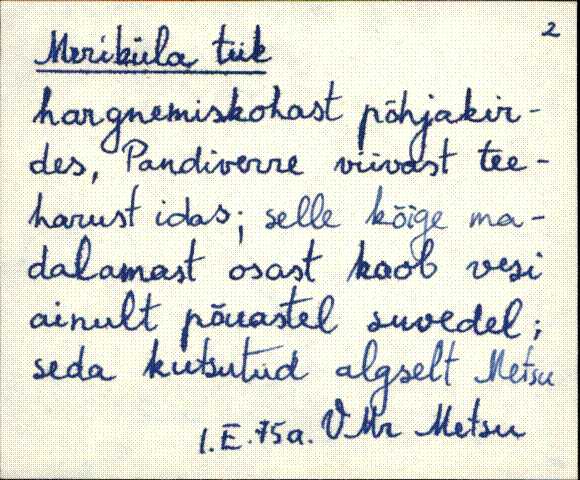 2
Meriküla tiik
hargnemiskohast põhjakir-
des, Pandiverre viivast tee-
harust idas; selle kõige ma-
dalamast osast kaob vesi
ainult põuastel suvedel;
seda kutsutud algselt Metsu
I.E.75a. VMr Metsu